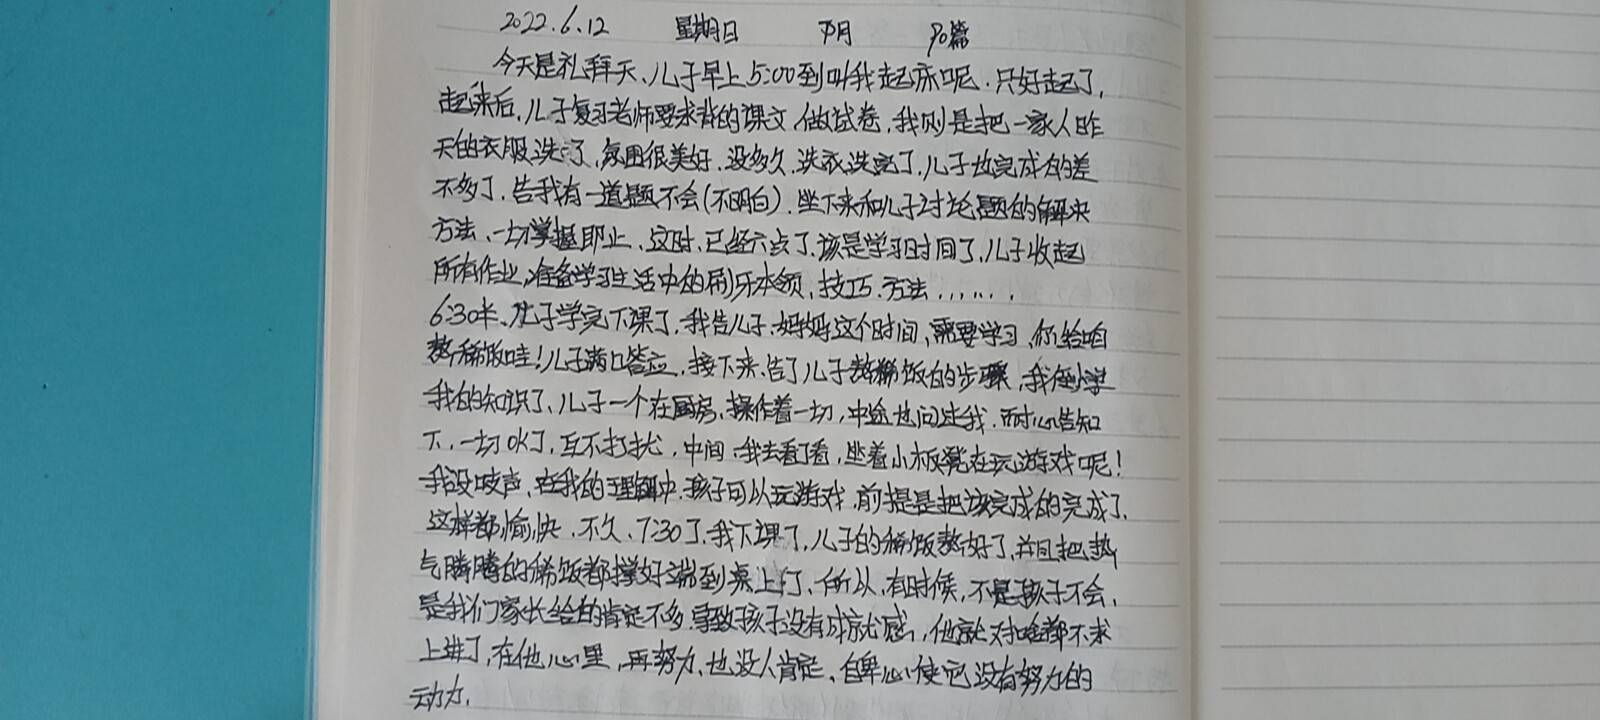 2022.6.12 星期日 90篇
今天是礼拜天、儿子早上5:00到叫我起床呢.只好起了,
起来后,儿子复习老师要求背的课文,做试卷,我则是把一家人昨
天的衣服洗了、氛围很美好.没多久.洗衣洗完了,儿子也完成的差
不多了.告我有一道题不会(不明白).坐下来和儿子讨论题的解决
方法、一切掌握即止、这时、已经六点了.该是学习时间了,儿子收起
所有作业,准备学习生活中的刷牙本领、技巧.方法.......
6:30半、儿子学完下课了.我告儿子.妈妈这个时间,需要学习,你给咱
熬稀饭哇!儿子满口答应.接下来、告了儿子熬稀饭的步骤,我便学
我的知识了、儿子一个在厨房、操作着一切,中途也问过我.耐心告知
下,一切OK了,互不打扰,中间.我去看了看,坐着小板凳在玩游戏呢!
我没吱声、在我的理解中.孩子可以玩游戏,前提是把该完成的完成了.
这样都愉快.不久、7:30了、我下课了、儿子的稀饭熬好了,并且把热
气腾腾的稀饭都撑好端到桌上了、所以,有时候,不是孩子不会,
是我们家长给的肯定不多.导致孩子没有成就感,他就对啥都不求
上进了,在他心里,再努力、也没人肯定、自卑心使它没有努力的
动力.